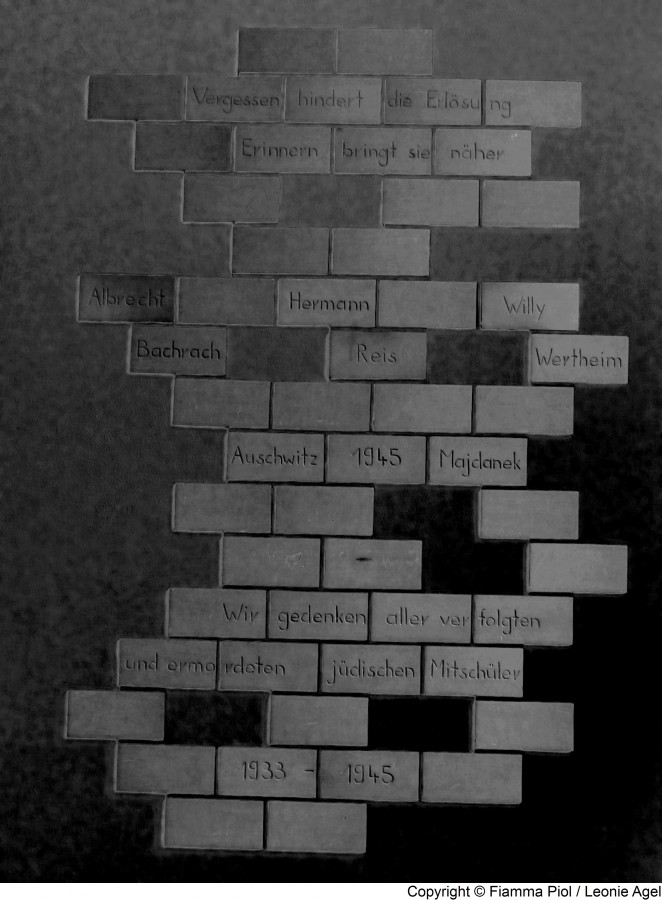 Vergessen hindert die Erlösung
Erinnern bringt sie näher
Albrecht Hermann Willy
Bachrach Reis Wertheim
Auschwitz 1945 Majdanek
Wir gedenken aller verfolgten
und ermordeten jüdischen Mitschüler
1933 - 1945
Copyright © Fiamma Piol / Leonie Agel